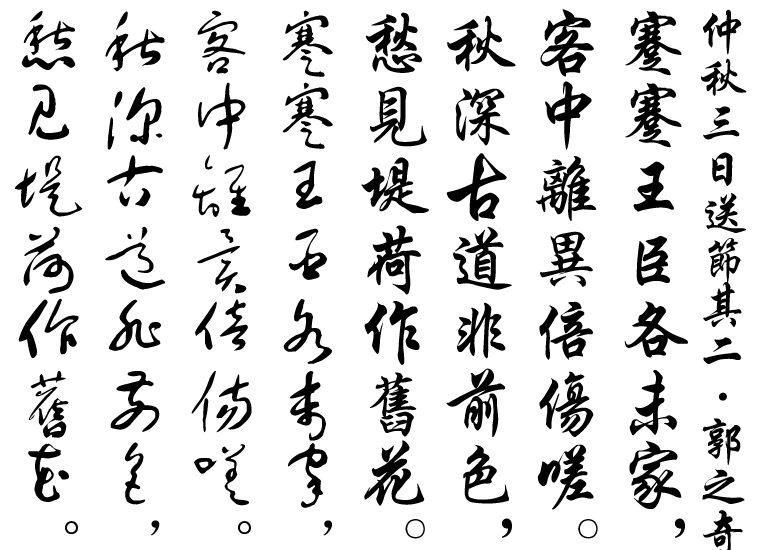 仲秋三日送節其二·郭之奇
蹇蹇王臣各未家，
客中離異倍傷嗟。
秋深古道非前色，
愁見堤荷作舊花。
蹇蹇王臣各未家，
客中離異倍傷嗟。
秋深古道非前色，
愁見堤荷作舊花。